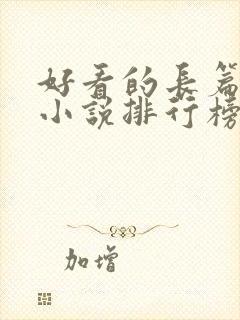 好看的長篇
小說排行榜
加增